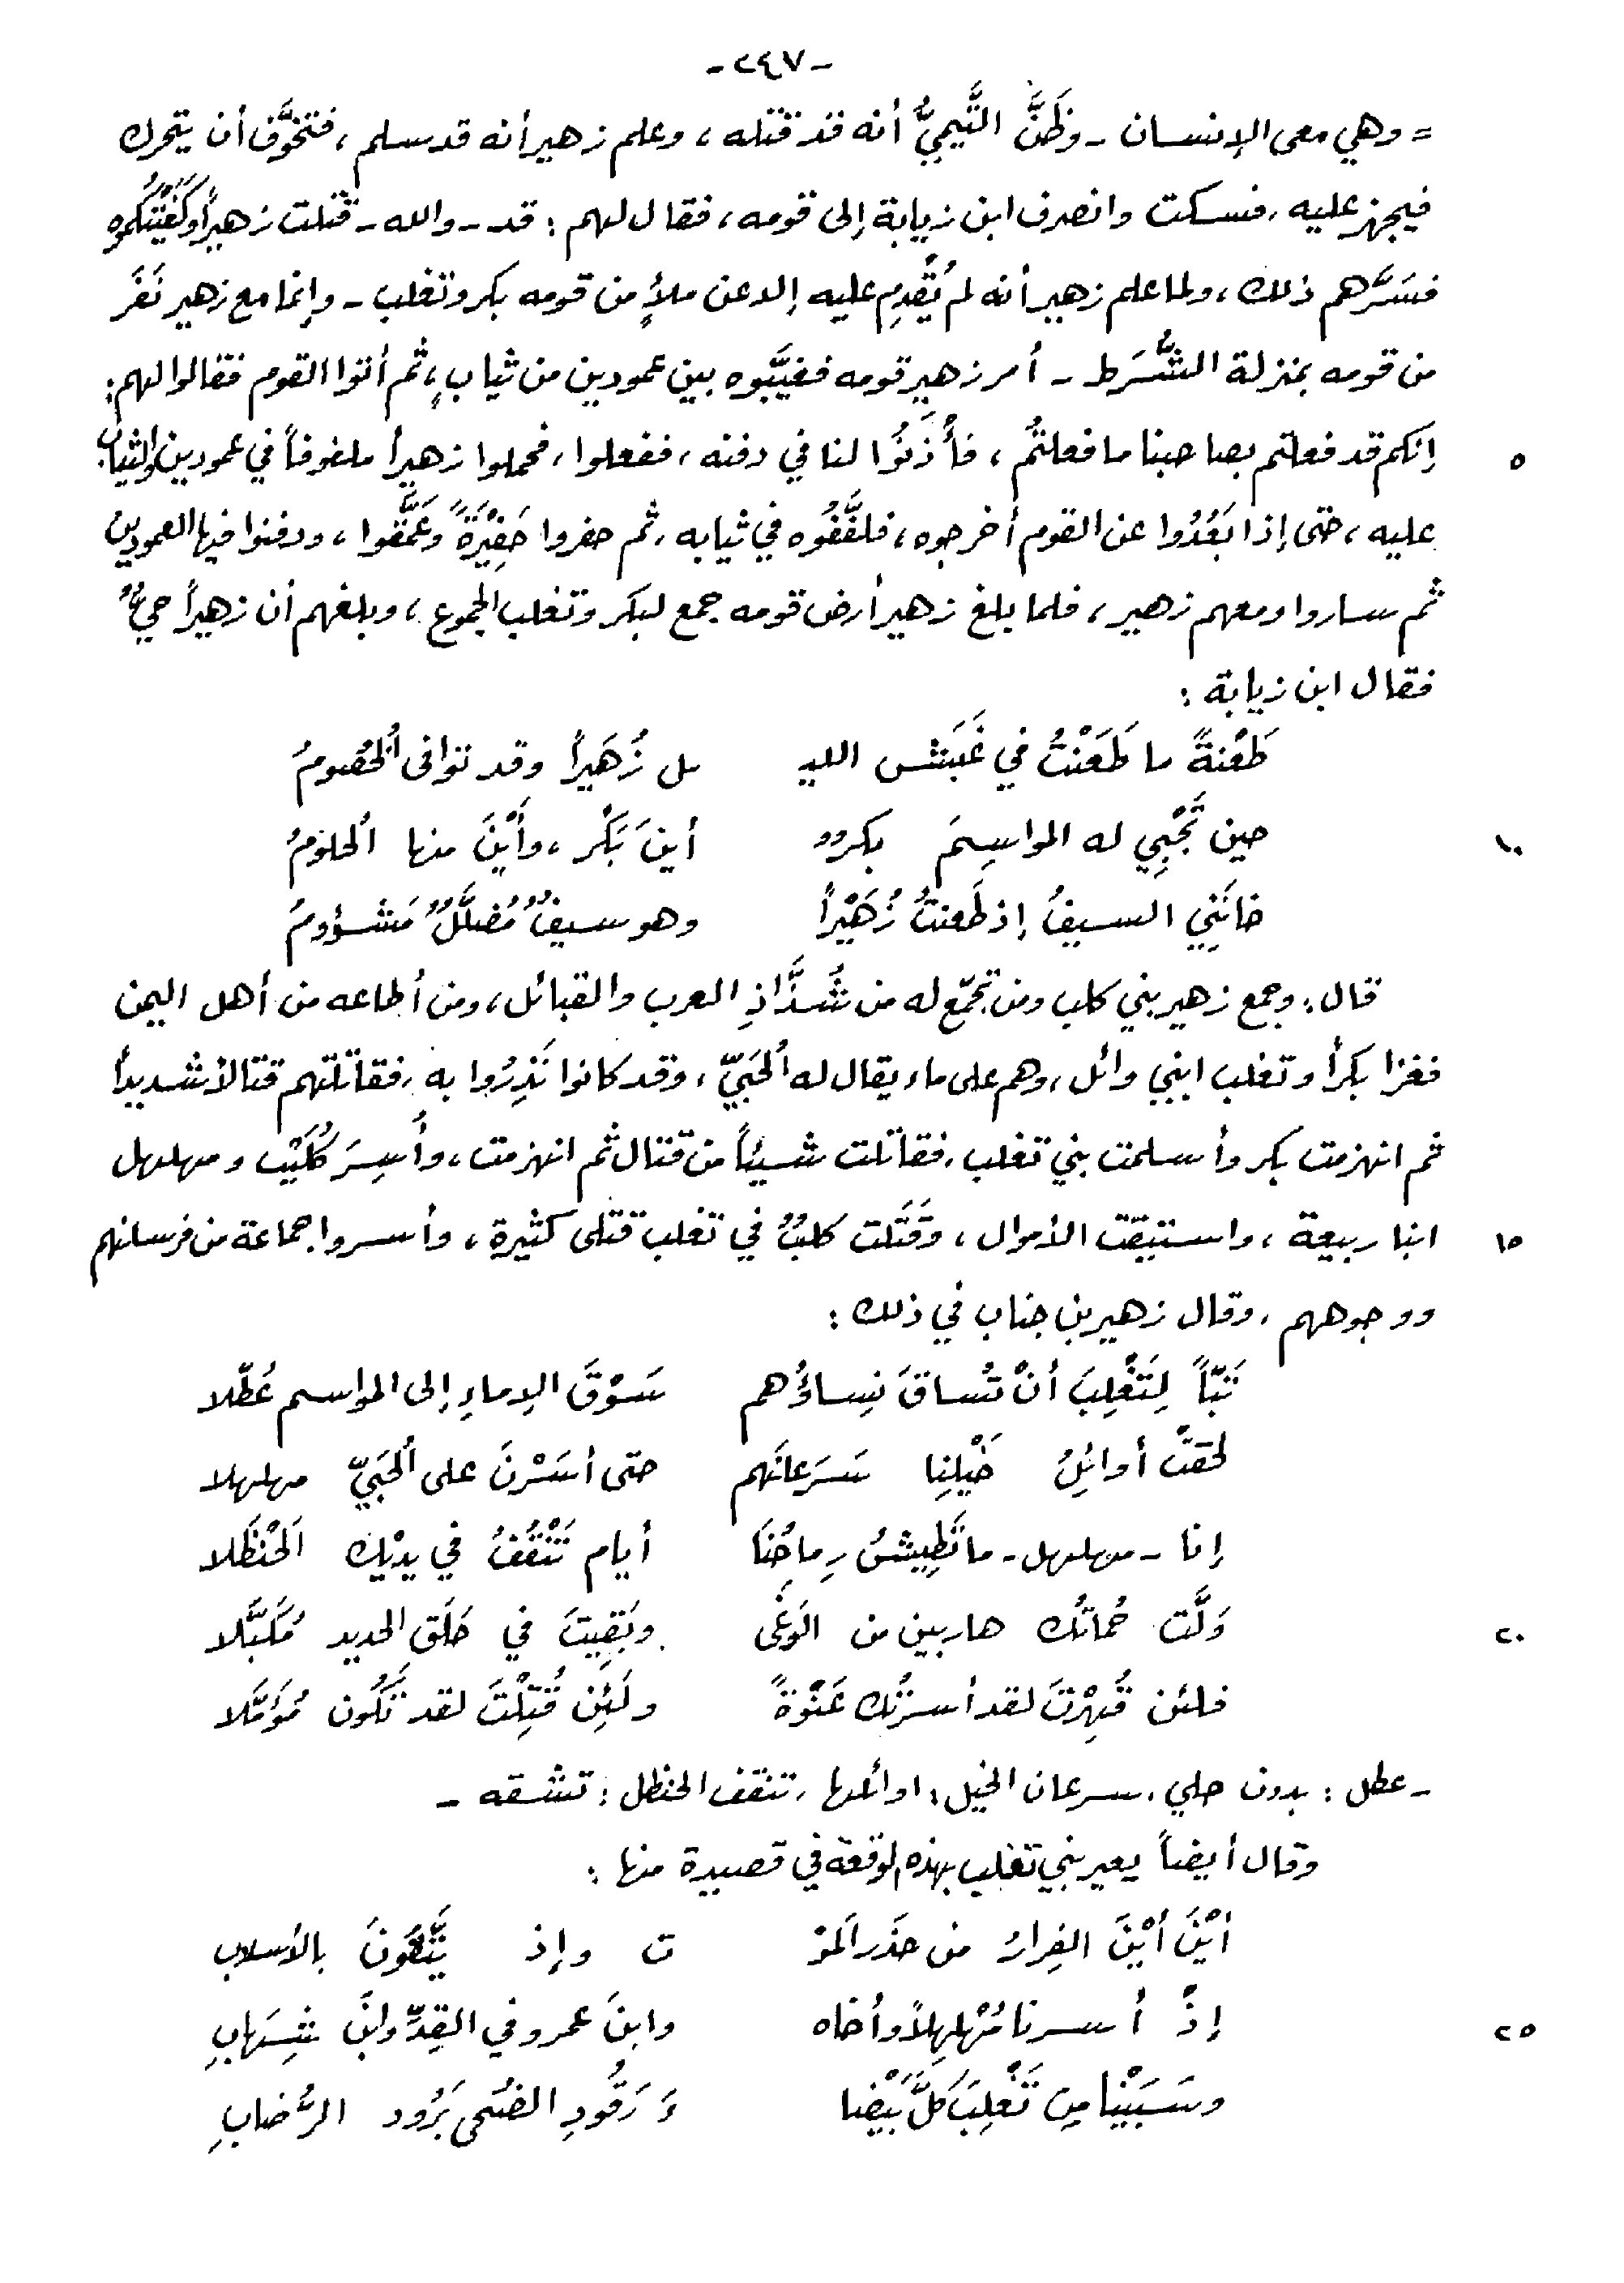 -٢٤٧-
= وهي معى الإنسان - وظَنَّ التَّيميُّ أنه قد قتله، وعلم زهير أنه قد سلم، فتخوَّف أن يتحرك
فيجهز عليه، فسكت وانصرف ابن زيابة إلى قومه، فقال لهم: قد - والله - قتلت زهيراً وكَفَيْتُكُموه
فسَرَّهم ذلك، ولما علم زهير أنه لم يُقْدِم عليه إلا عن ملأٍ من قومه بكر وتغلب - وإنما مع زهير نَفَر
من قومه بمنزلة الشُّرَط - أمر زهير قومه فغيَّبوه بين عمودين من ثيابٍ، ثم أتوا القوم فقالوا لهم:
إنكم قد فعلتم بصاحبنا ما فعلتُم، فأْذَنُوا لنا في دفنه، ففعلوا، فحملوا زهيراً ملفوفاً في عمودين والثياب ٥
عليه، حتى إذا بَعُدُوا عن القوم أخرجوه، فلفَّفُوه في ثيابه، ثم حفروا حَفِيْرَةً وَعَمَّقوا، ودفنوا فيها العمودين
ثم ساروا ومعهم زهير، فلما بلغ زهير أرض قومه جمع لبكر وتغلب الجموع، وبلغهم أن زهيراً حيٌّ
فقال ابن زيابة:
طَعْنةً ما طَعَنْتُ في غَبَش اللي ـل زُهَيراً وقد توافى اُلخُصُومُ
حين تَجْبِي له المواسِمَ بكرٌ أينَ بَكْر، وأَيْنَ منها اُلحلومُ ١٠
خانَنِي السيفُ إذ طَعنتُ زُهَيْراً وهو سيفٌ مُضلَّلٌ مَشؤومُ
قال: وجمع زهير بني كلب ومن تجمّع له من شُذَّاذِ العرب والقبائل، ومن أطاعه من أهل اليمن
فغزا بكراً وتغلب ابني وائل، وهم على ماء يقال له اُلحَبَيّ، وقد كانوا نَذِرُوا به، فقاتلتهم قتالاً شديداً
ثم انهزمت بكر وأسلمت بني تغلب، فقاتلت شيئاً من قتال ثم انهزمت، وأُسِرَ كُلَيْب ومهلهل
ابنا ربيعة، واستيقت الأموال، وقَتَلت كلبٌ في تغلب قتلى كثيرة، وأسروا جماعة من فرسانهم ١٥
ووجوههم، وقال زهير بن جناب في ذلك:
تَبّاً لِتَغْلِبَ أنْ تُساقَ نِساؤُهم سَوْقَ الإماءِ إلى المواسم عُطّلا
لحقَتْ أوائِلُ خَيْلِنا سَرَعانَهم حتى أسَرْنَ على اُلحَبَيّ مهلهلا
إنا - مهلهل - ما تَطِيشُ رِماحُنَا أيام تَنْقُفُ في يدَيْك اَلحنْظَلا
وَلَّت حُماتُك هاربين من الوَغَى وبَقِيتَ في حَلَقِ الحديد مُكَبَّلا ٢٠
فلئن قُهِرْتَ لقد أسرتُك عَنْوَةً ولَئِن قُتِلْتَ لقد تَكُون مُؤَمَّلا
- عطل: بدون حلي، سرعان الخيل: اوائلها، تنقف الحنظل: تشقه -
وقال أيضاً يعير بني تغلب بهذه الوقعة في قصيدة منها:
أيْنَ أيْنَ الفِرارُ من حذَر اَلموْ ت وإذ يَتَّقُونَ بالأسلاب
إذْ أسرنا مُهْلهِلاً وأخاه وابنَ عمرو في القِدِّ وابْنَ شِهَابِ ٢٥
وسَبَيْنا مِن تَغْلِبَ كلَّ بَيْضا ءَ رَقُودِ الضُحى بَرُود الرُّضابِ